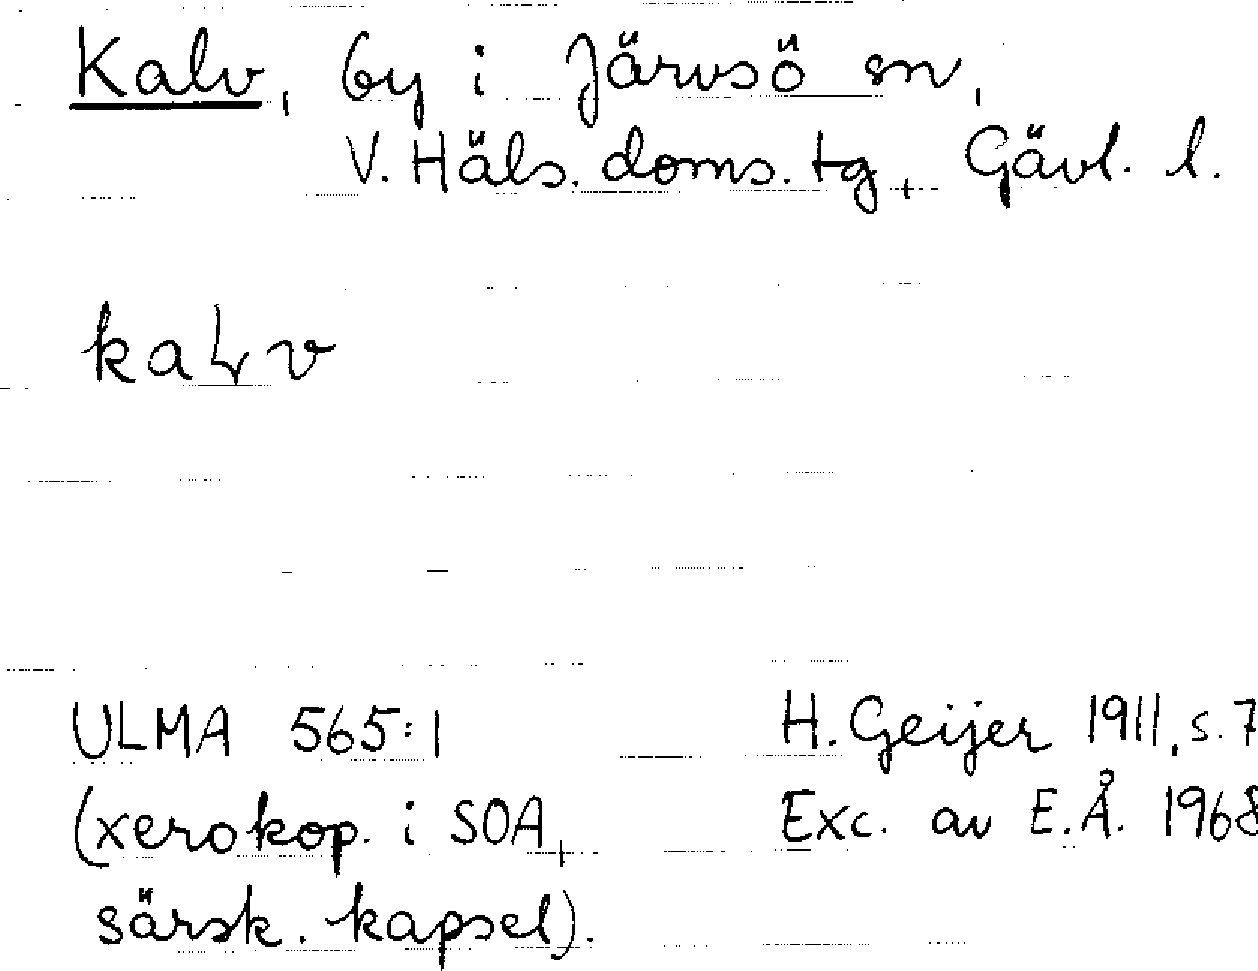 Kalv, by i Järvsö sn,
V. Häls. doms. tg, Gävl. l.
kaļv
ULMA 565:1
(xerokop. i SOA,
särsk. kapsel).
H. Geijer 1911, s. 7
Exc. av E.Å. 1968